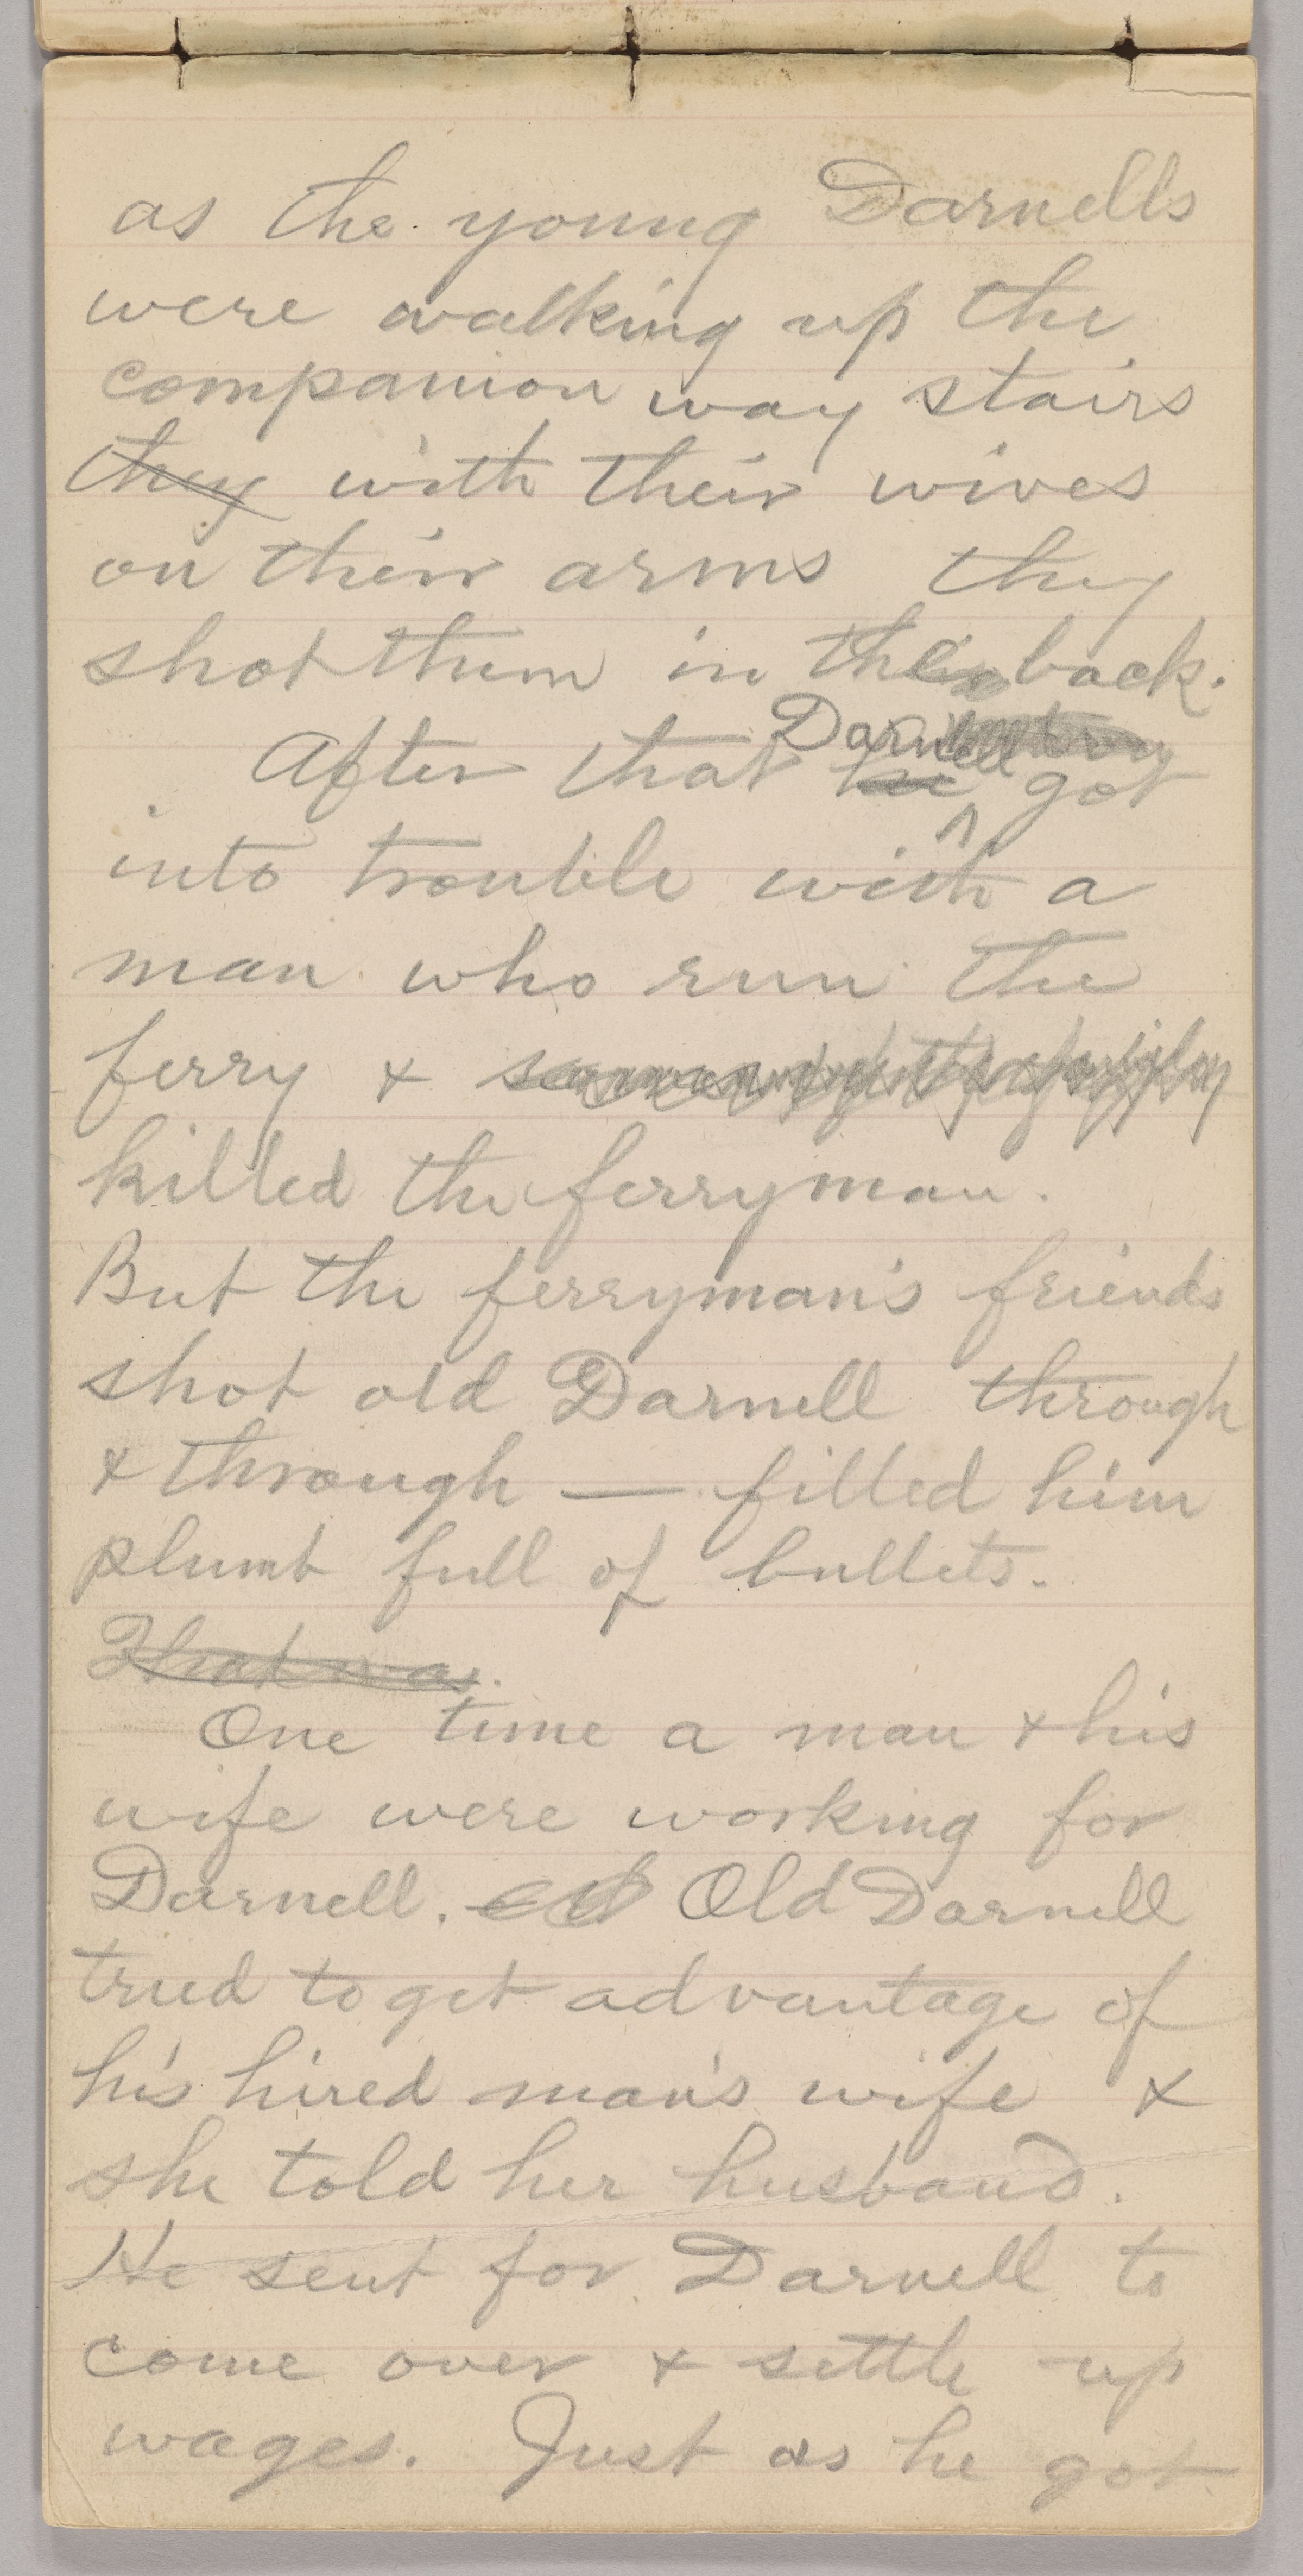 as the young Darnells
were walking up the
companion way stairs
they with their wives
on their arms they
shot them in the back.
Darnell
After that he got
into trouble with a
man who run the
ferry &
killed the ferryman.
But the ferryman's friends
shot old Darnell through
& through — filled him
plumb full of bullets.
That was
One time a man & his
wife were working for
Darnell. Old Darnell
tried to get advantage of
his hired man's wife &
she told her husband.
He sent for Darnell to
come over & settle up
wages. Just as he got